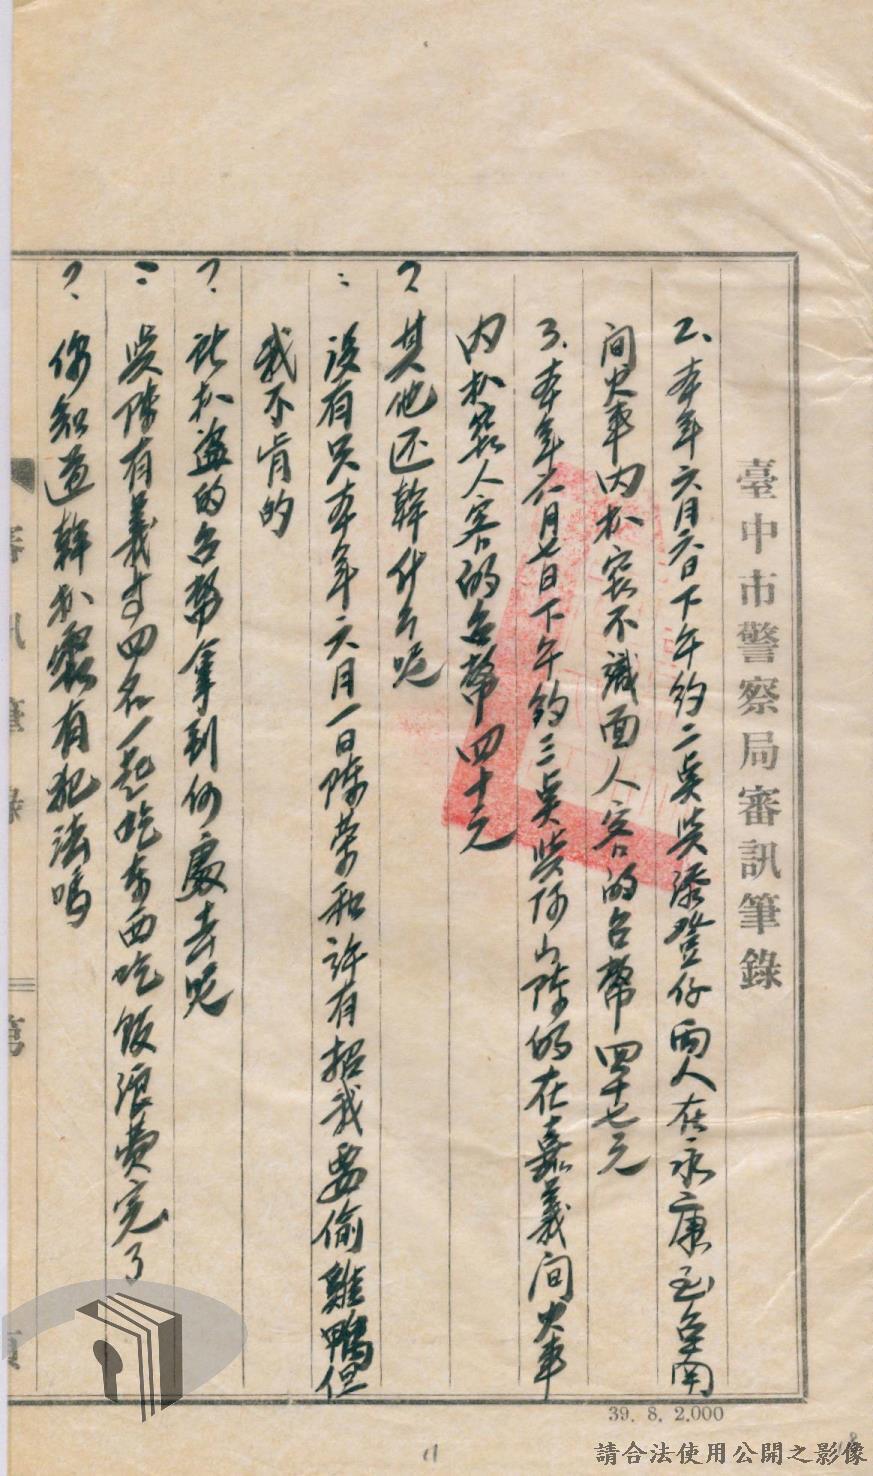 臺中市警察局審訊筆錄
2、本年六月六日下午約二吳吳添登仔両人在永康至台南
间火車内扒窃不識面人客的台幣四十七元
3、本年六月七日下午約三吳吳阿山陳的在嘉義间火車
内扒窃人客的台幣四十元
?其他还幹什么呢
:没有只本年六月一日陈荣和許有招我要偷雞鴨但
我不肯的
?扒盗的台幣拿到何處去呢
:吳陳有義等四名一起吃东西吃飯浪费完了
?你知道幹扒竊有犯法嗎
審訊筆錄 第 頁
39. 8. 2.000
請合法使用公開之影像